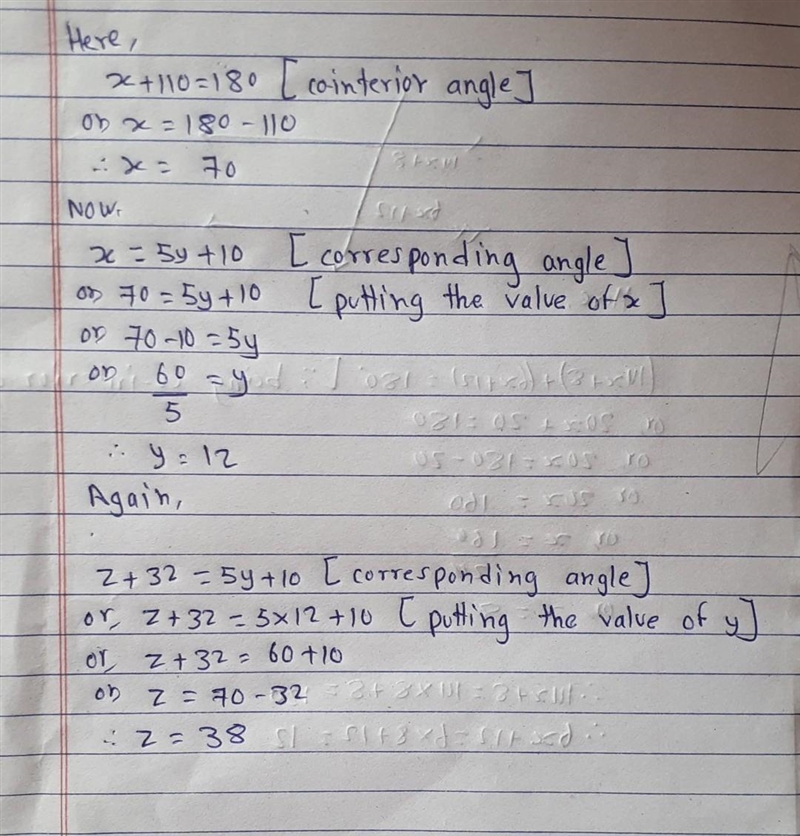 Here,
x+110=180 [cointerior angle]
or x = 180 - 110
∴ x = 70
Now.
x = 5y+10 [corresponding angle]
or 70 = 5y+10 [putting the value of x]
or 70-10 = 5y
or 60/5 = y
∴ y = 12
Again,
z+32 = 5y+10 [corresponding angle]
or, z+32 = 5×12+10 [putting the value of y]
or, z+32 = 60+10
or z = 70-32
∴ z = 38